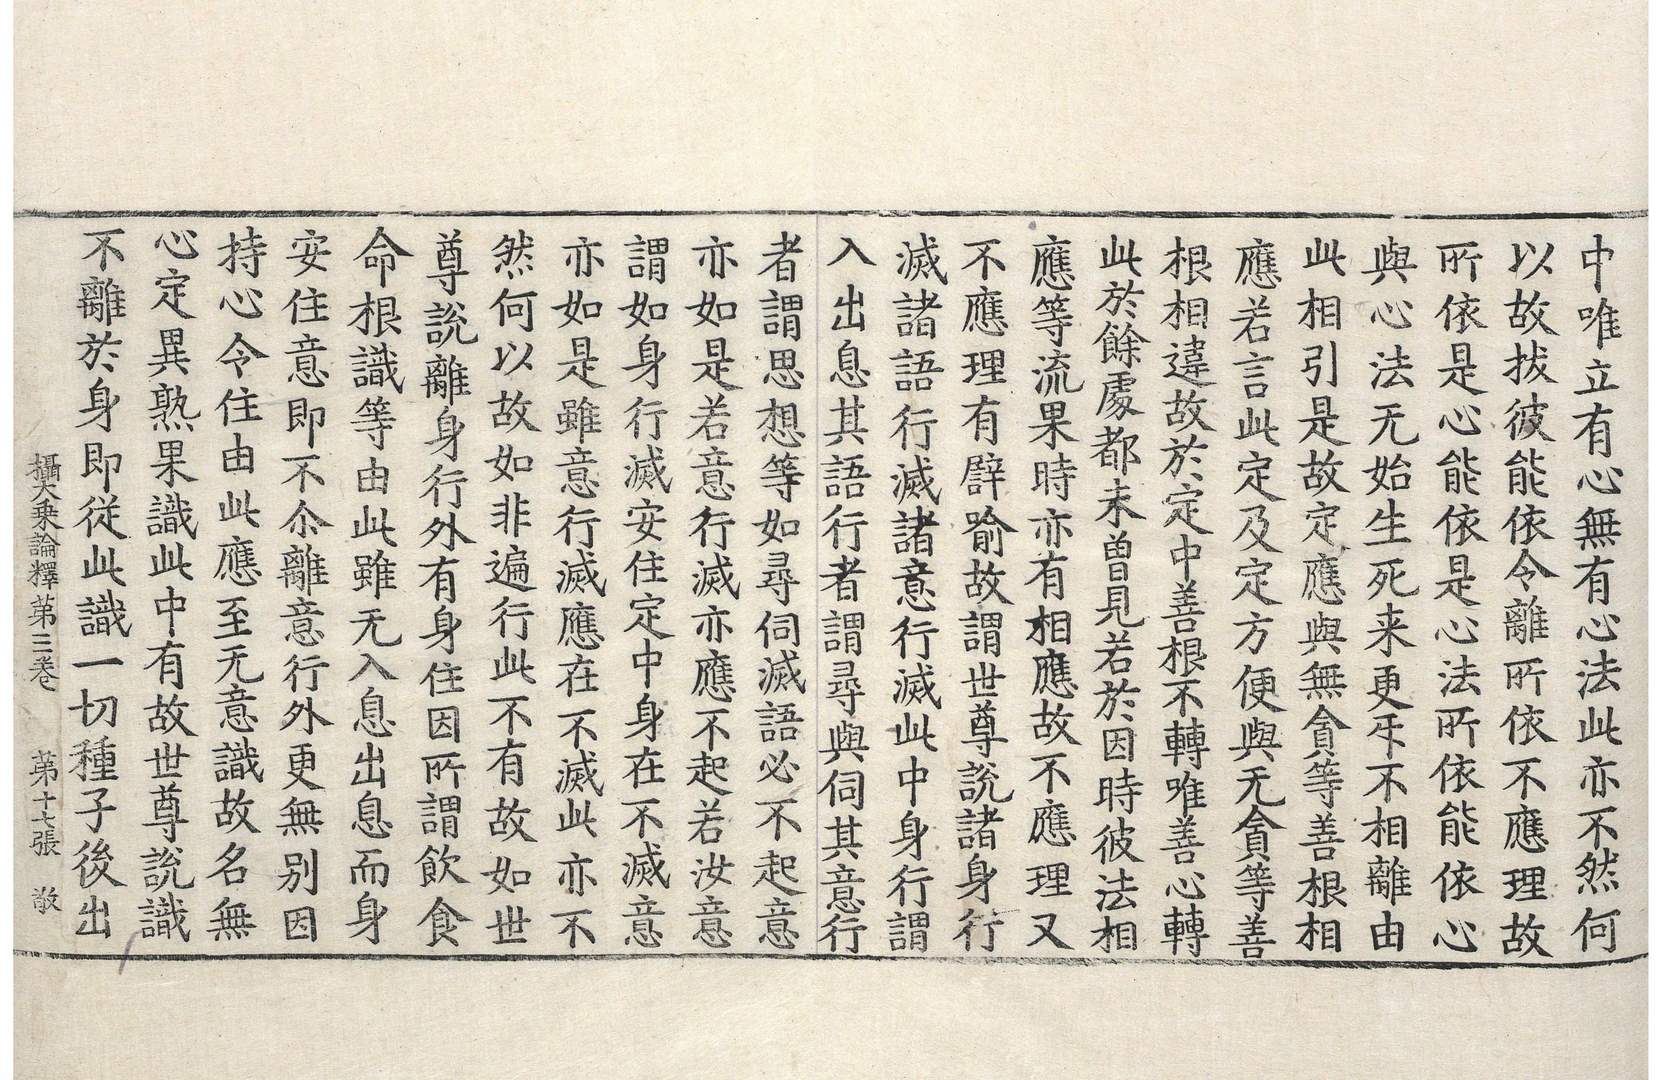 中唯立有心無有心法此亦不然何
以故拔彼能依令離所依不應理故
所依是心能依是心法所依能依心
與心法无始生死来更㸦不相離由
此相引是故定應與無貪等善根相
應若言此定及定方便與无貪等善
根相違故於定中善根不轉唯善心轉
此於餘處都未曽見若於因時彼法相
應等流果時亦有相應故不應理又
不應理有譬喻故謂世尊說諸身行
滅諸語行滅諸意行滅此中身行謂
入出息其語行者謂尋與伺其意行
者謂思想等如尋伺滅語必不起意
亦如是若意行滅亦應不起若汝意
謂如身行滅安住定中身在不滅意
亦如是雖意行滅應在不滅此亦不
然何以故如非遍行此不有故如世
尊說離身行外有身住因所謂飲食
命根識等由此雖无入息出息而身
安住意即不尒離意行外更無別因
持心令住由此應至无意識故名無
心定異熟果識此中有故世尊說識
不離於身即從此識一切種子後出
攝大乗論釋第三卷 第十七張 敬